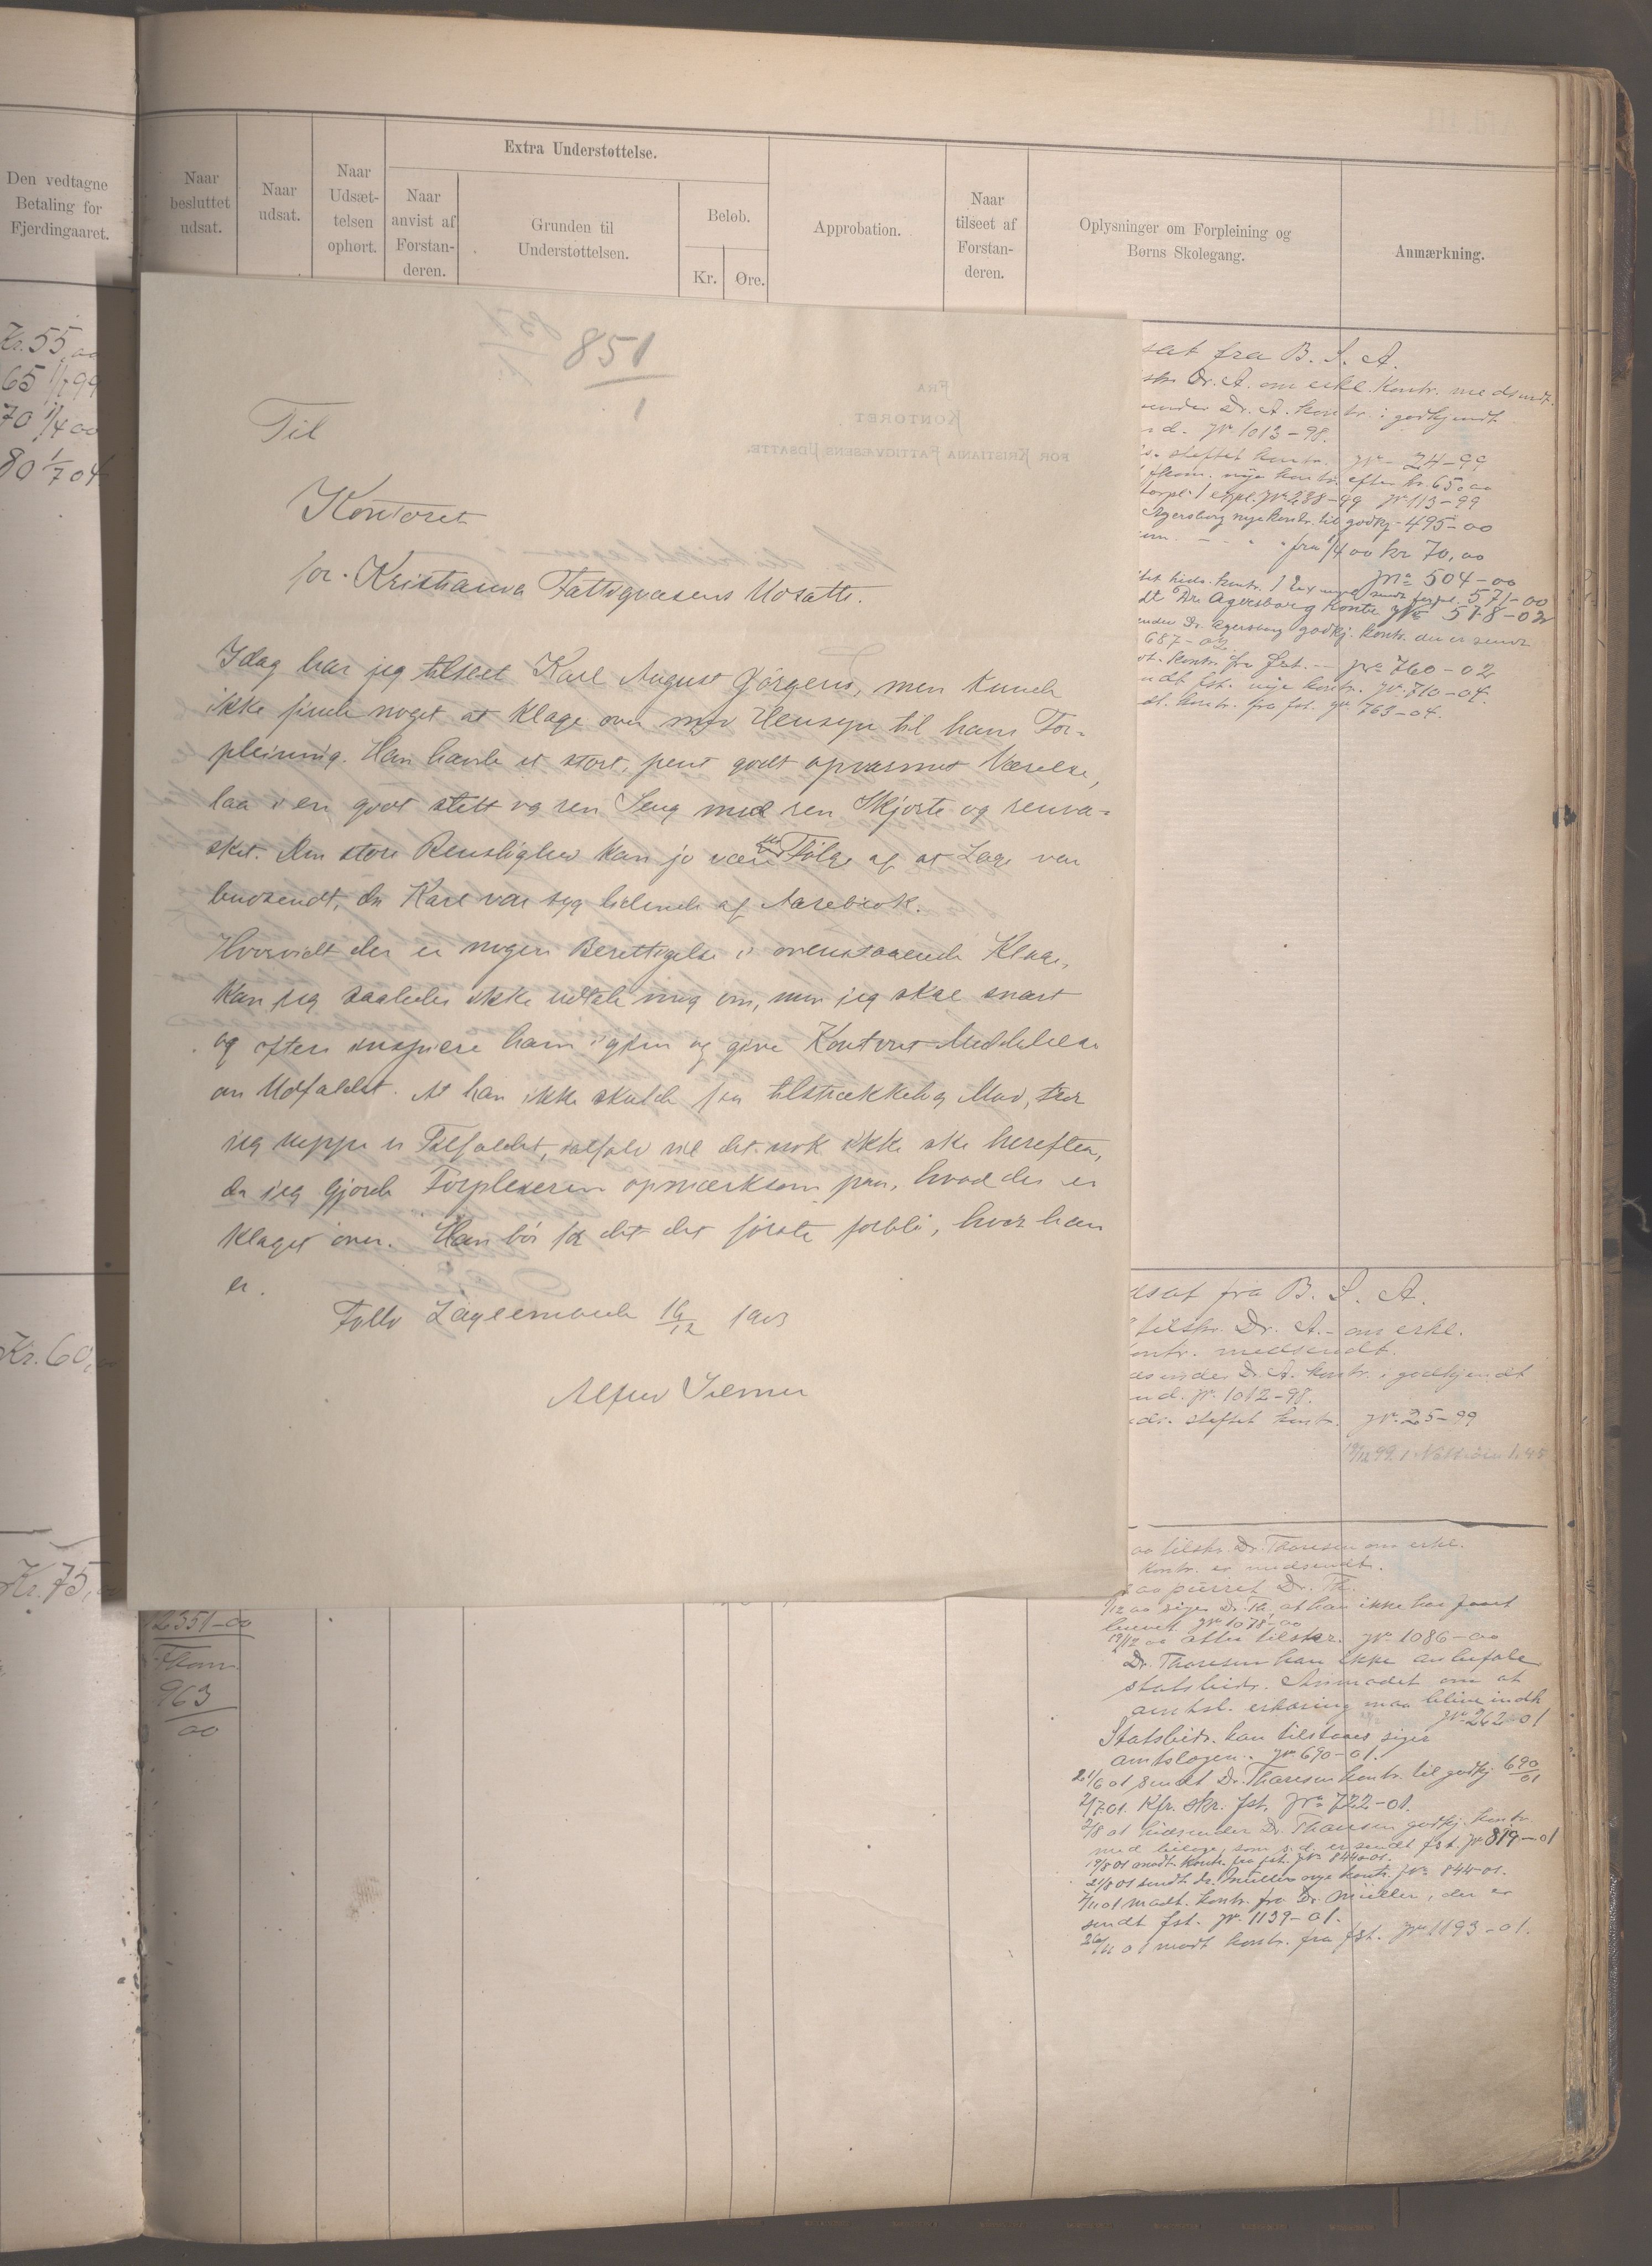 Den vedtagne
Betaling for
Fjerdingaaret.
Kr. 55,00
65 1/7 99
70 1/4 00
80 1/7 04
Kr. 60,
Kr. 75,
Naar
besluttet
udsat.
Naar
udsat.
Naar
Udsæt-
telsen
ophort.
Extra Understøttelse.
Naar
anvist af
Forstan-
deren.
Grunden til
Understøttelsen.
Beløb.
Kr.
Øre.
Approbation.
Naar
tilseet af
Forstan-
deren.
Oplysninger om Forpleining og
Børns Skolegang.
Anmærkning.
851
1
FRA
KONTORET
FOR KRISTIANIA FATTIGVÆSENS UDSATTE.
Til
Kontoret
for Kristiania Fattigvæsens Udsatte.
Idag har jeg tilseet Karl August Jörgens, men kunde
ikke finde noget at klage over med Hensyn til hans For-
pleining. Han havde et stort, pent godt opvarmet Værelse,
laa i en god stelt og ren Seng med ren Skjorte og renva-
sket. Den store Renslighed kan jo være en Følge af at Læge var
budsendt, da Karl var syg lidende af Aarebrok.
Hvorvidt der er nogen Berettigelse i ovenstaaende Klage,
kan jeg saaledes ikke udtale mig om, men jeg skal snart
og oftere inspicere ham igjen og give Kontoret Meddelelse
om Udfaldet. At han ikke skulde faa tilstrækkelig Mad, tror
jeg neppe er Tilfældet, ialfald vil det nok ikke ske herefter,
da jeg gjorde Forpleieren opmærksom paa, hvad der er
klaget over. Han bør for det det første forbli, hvor han
er.
Follo Lægeembede 16/12 1903
Alfred
sat fra B. S. A.
Dr. A. om erkl. Kontr. medsendt.
Dr. A. kontr. i godkjendt
Jr. 1013-98.
steftet kontr. Jr. 24-99
nye kontr. efter kr. 65,00
Jr. 238-99 Jr 113-99
Agersborg nye kontr. til godkj - 495-00
fra 1/4 00 kr 70,00
Jr. 504-00
571-00
Dr. Agersborg kontr. Jr. 578-02
Dr. Agersborg godkj. kontr. der er sendt
687-02
kontr. fra fst. - Jr. 760-02
fst. nye kontr. Jr. 710-04.
kontr. fra fst. Jr. 763-04.
fra B. S. A.
tilskr. Dr. A. - om erkl.
kontr. medsendt.
Dr. A. kontr. i godkjendt
Jr. 1012-98.
steftet kontr. Jr. 25-99
00 tilskr. Dr. Thoresen om erkl.
Kontr. er medsendt.
00 purret Dr. Th.
/12 00 siger Dr. Th. at han ikke har faaet
brevet Jr. 1078-00
19/12 00 atter tilskr. Jr. 1086-00
Dr. Thoresen kan ikke anbefale
statsbidr. Anmodet om at
amtsl. erklæring maa blive indh
Jr. 262-01
Statsbidr. kan tilstaaes siger
amtslægen. Jr. 690-01.
21/6 01 sendt Dr. Thoresen kontr. til godkj. 690/01
2/7 01. Kfr. skr. fst. Jr. 722-01.
2/8 01 hidsender Dr. Thoresen godkj. kontr.
med bilage, som s. d. er sendt fst. Jr 819-01
19/8 01 modt. kontr. fra fst. Jr. 844-01.
21/8 01 sendt dr. Müller nye kontr. Jr. 844-01.
7/11 01 modt. kontr. fra Dr. Müller, der er
sendt fst. Jr. 1139-01.
26/11 01 modt kontr. fra fst. Jr 1193-01.
12351-00
Thom.
963
00